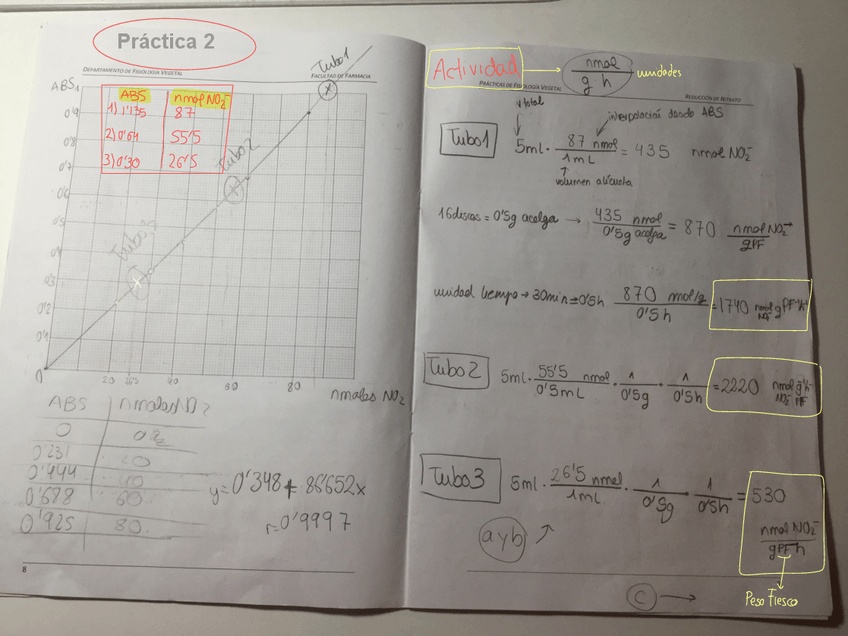 Práctica 2
DEPARTAMENTO DE FISIOLOGÍA VEGETAL
FACULTAD DE FARMACIA
ABS
1
0'9
0'8
0'7
0'6
0'5
0'4
0'3
0'2
0'1
0
20 26'5 40 60 80
nmoles NO2
Tubo 1
Tubo 2
Tubo 3
ABS nmol NO2-
1) 1'135 87
2) 0'64 55'5
3) 0'30 26'5
ABS nmoles NO2
0 0
0'231 20
0'444 40
0'688 60
0'925 80
y=0'348+86'652x
r=0'9997
8
Actividad → nmol / g h unidades
PRÁCTICAS DE FISIOLOGÍA VEGETAL
REDUCCIÓN DE NITRATO
v total
interpolación dando ABS
Tubo 1 5ml · 87 nmol / 1mL = 435 nmol NO2-
volumen alícuota
16 discos = 0'5g acelga → 435 nmol / 0'5g acelga = 870 nmol NO2- / gPF
unidad tiempo → 30min = 0'5h 870 mol/g / 0'5h = 1740 nmol NO2- g PF-1 h-1
Tubo 2 5ml · 55'5 nmol / 0'5mL · 1 / 0'5g · 1 / 0'5h = 2220 nmol NO2- g-1 h-1 PF
Tubo 3 5ml · 26'5 nmol / 1mL · 1 / 0'5g · 1 / 0'5h = 530
nmol NO2- / gPF h
a y b
Peso Fresco
C →